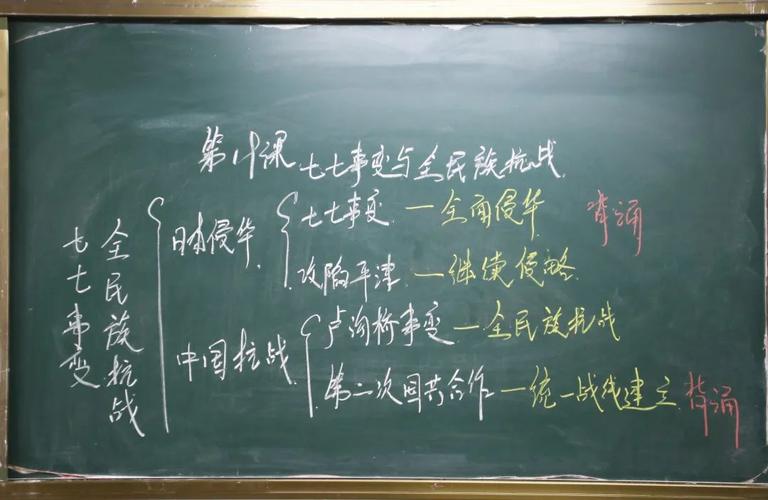 第19课 七七事变与全民族抗战
七七事变
全民族抗战
日本侵华
七七事变 — 全面侵华 背诵
攻陷平津 — 继续侵略
中国抗战
卢沟桥事变 — 全民族抗战
第二次国共合作 — 统一战线建立 背诵